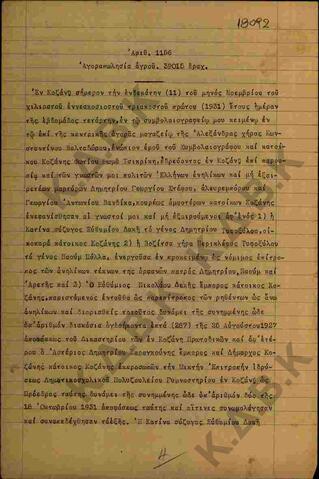 18092
Ἀριθ. 1156
Ἀγοραπωλησία ἀγροῦ. 39015 δραχ.
Ἐν Κοζάνῃ σήμερον τήν ἑνδεκάτην (11) τοῦ μηνός Νοεμβρίου τοῦ
χιλιοστοῦ ἐννεακοσιοστοῦ τριακοστοῦ πρώτου (1931) ἔτους ἡμέραν
τῆς ἑβδομάδος τετάρτην, ἐν τῷ συμβολαιογραφείῳ μου κειμένῳ ἐν
τῷ ἐπί τῆς κεντρικῆς ἀγορᾶς μαγαζείῳ τῆς Ἀλεξάνδρας χήρας Κων
σταντίνου Βαλταδώρου, ἐνώπιον ἐμοῦ τοῦ Συμβολαιογράφου καί κατοί
κου Κοζάνης Φωτίου Θωμᾶ Τσικρίκη, ἑδρεύοντος ἐν Κοζάνῃ ἐπί παρου
σίᾳ καί τῶν γνωστῶν μοι πολιτῶν Ἑλλήνων ἐνηλίκων καί μή ἐξ
αιρετέων μαρτύρων Δημητρίου Γεωργίου Στέφου, ἀλευρεμπόρου καί
Γεωργίου Ἀντωνίου Βανδίκα, κουρέως ἀμφοτέρων κατοίκων Κοζάνης
ἐνεφανίσθησαν οἱ γνωστοί μοι καί μή ἐξαιρούμενοι ἀφ'ἑνός 1) ἡ
Κατίνα σύζυγος Εὐθυμίου Δακῆ τό γένος Δημητρίου Τυφοξύλου, οἰ
κοκυρά κάτοικος Κοζάνης 2) ἡ Βοζίτσα χήρα Περικλέους Τυφοξύλου
τό γένος Ναούμ Μόλλα, ἐνεργοῦσα ἐν προκειμένῳ ὡς νόμιμος ἐπίτρο
πος τῶν ἀνηλίκων τέκνων της ὀρφανῶν πατρός Δημητρίου, Ναούμ καί
Ἀρετῆς καί 3) Ὁ Εὐθύμιος Νικολάου Δακῆς ἔμπορος κάτοικος Κο
ζάνης, παριστάμενος ἐνταῦθα ὡς παρεπίτροπος τῶν ρηθέντων ὡς ἄνω
ἀνηλίκων καί διορισθείς τοιοῦτος δυνάμει τῆς συνημμένης ὧδε
ὑπ'ἀριθμόν διακόσια ὀγδοήκοντα ἑπτά (287) τῆς 26 Αὐγούστου 1927
ἀποφάσεως τοῦ Δικαστηρίου τῶν ἐν Κοζάνῃ Πρωτοδικῶν καί ἀφ'ἑτέ
ρου ὁ Ἀστέριος Δημητρίου Καραγκούνης ἔμπορος καί Δήμαρχος Κο
ζάνης κάτοικος Κοζάνης ἐκπροσωπῶν τήν Μικτήν Ἐπιτροπήν Ἱδρύ
σεως Δημοτικοσχολικοῦ Πολυζωλείου Γυμναστηρίου ἐν Κοζάνῃ ὡς
Πρόεδρος ταύτης δυνάμει τῆς συνημμένης ὧδε ὑπ'ἀριθμόν δύο τῆς
18 Ὀκτωβρίου 1931 ἀποφάσεως ταύτης καί αἵτινες συνωμολόγησαν
καί συναπεδέχθησαν τά ἑξῆς. Ἡ Κατίνα σύζυγος Εὐθυμίου Δακῆ